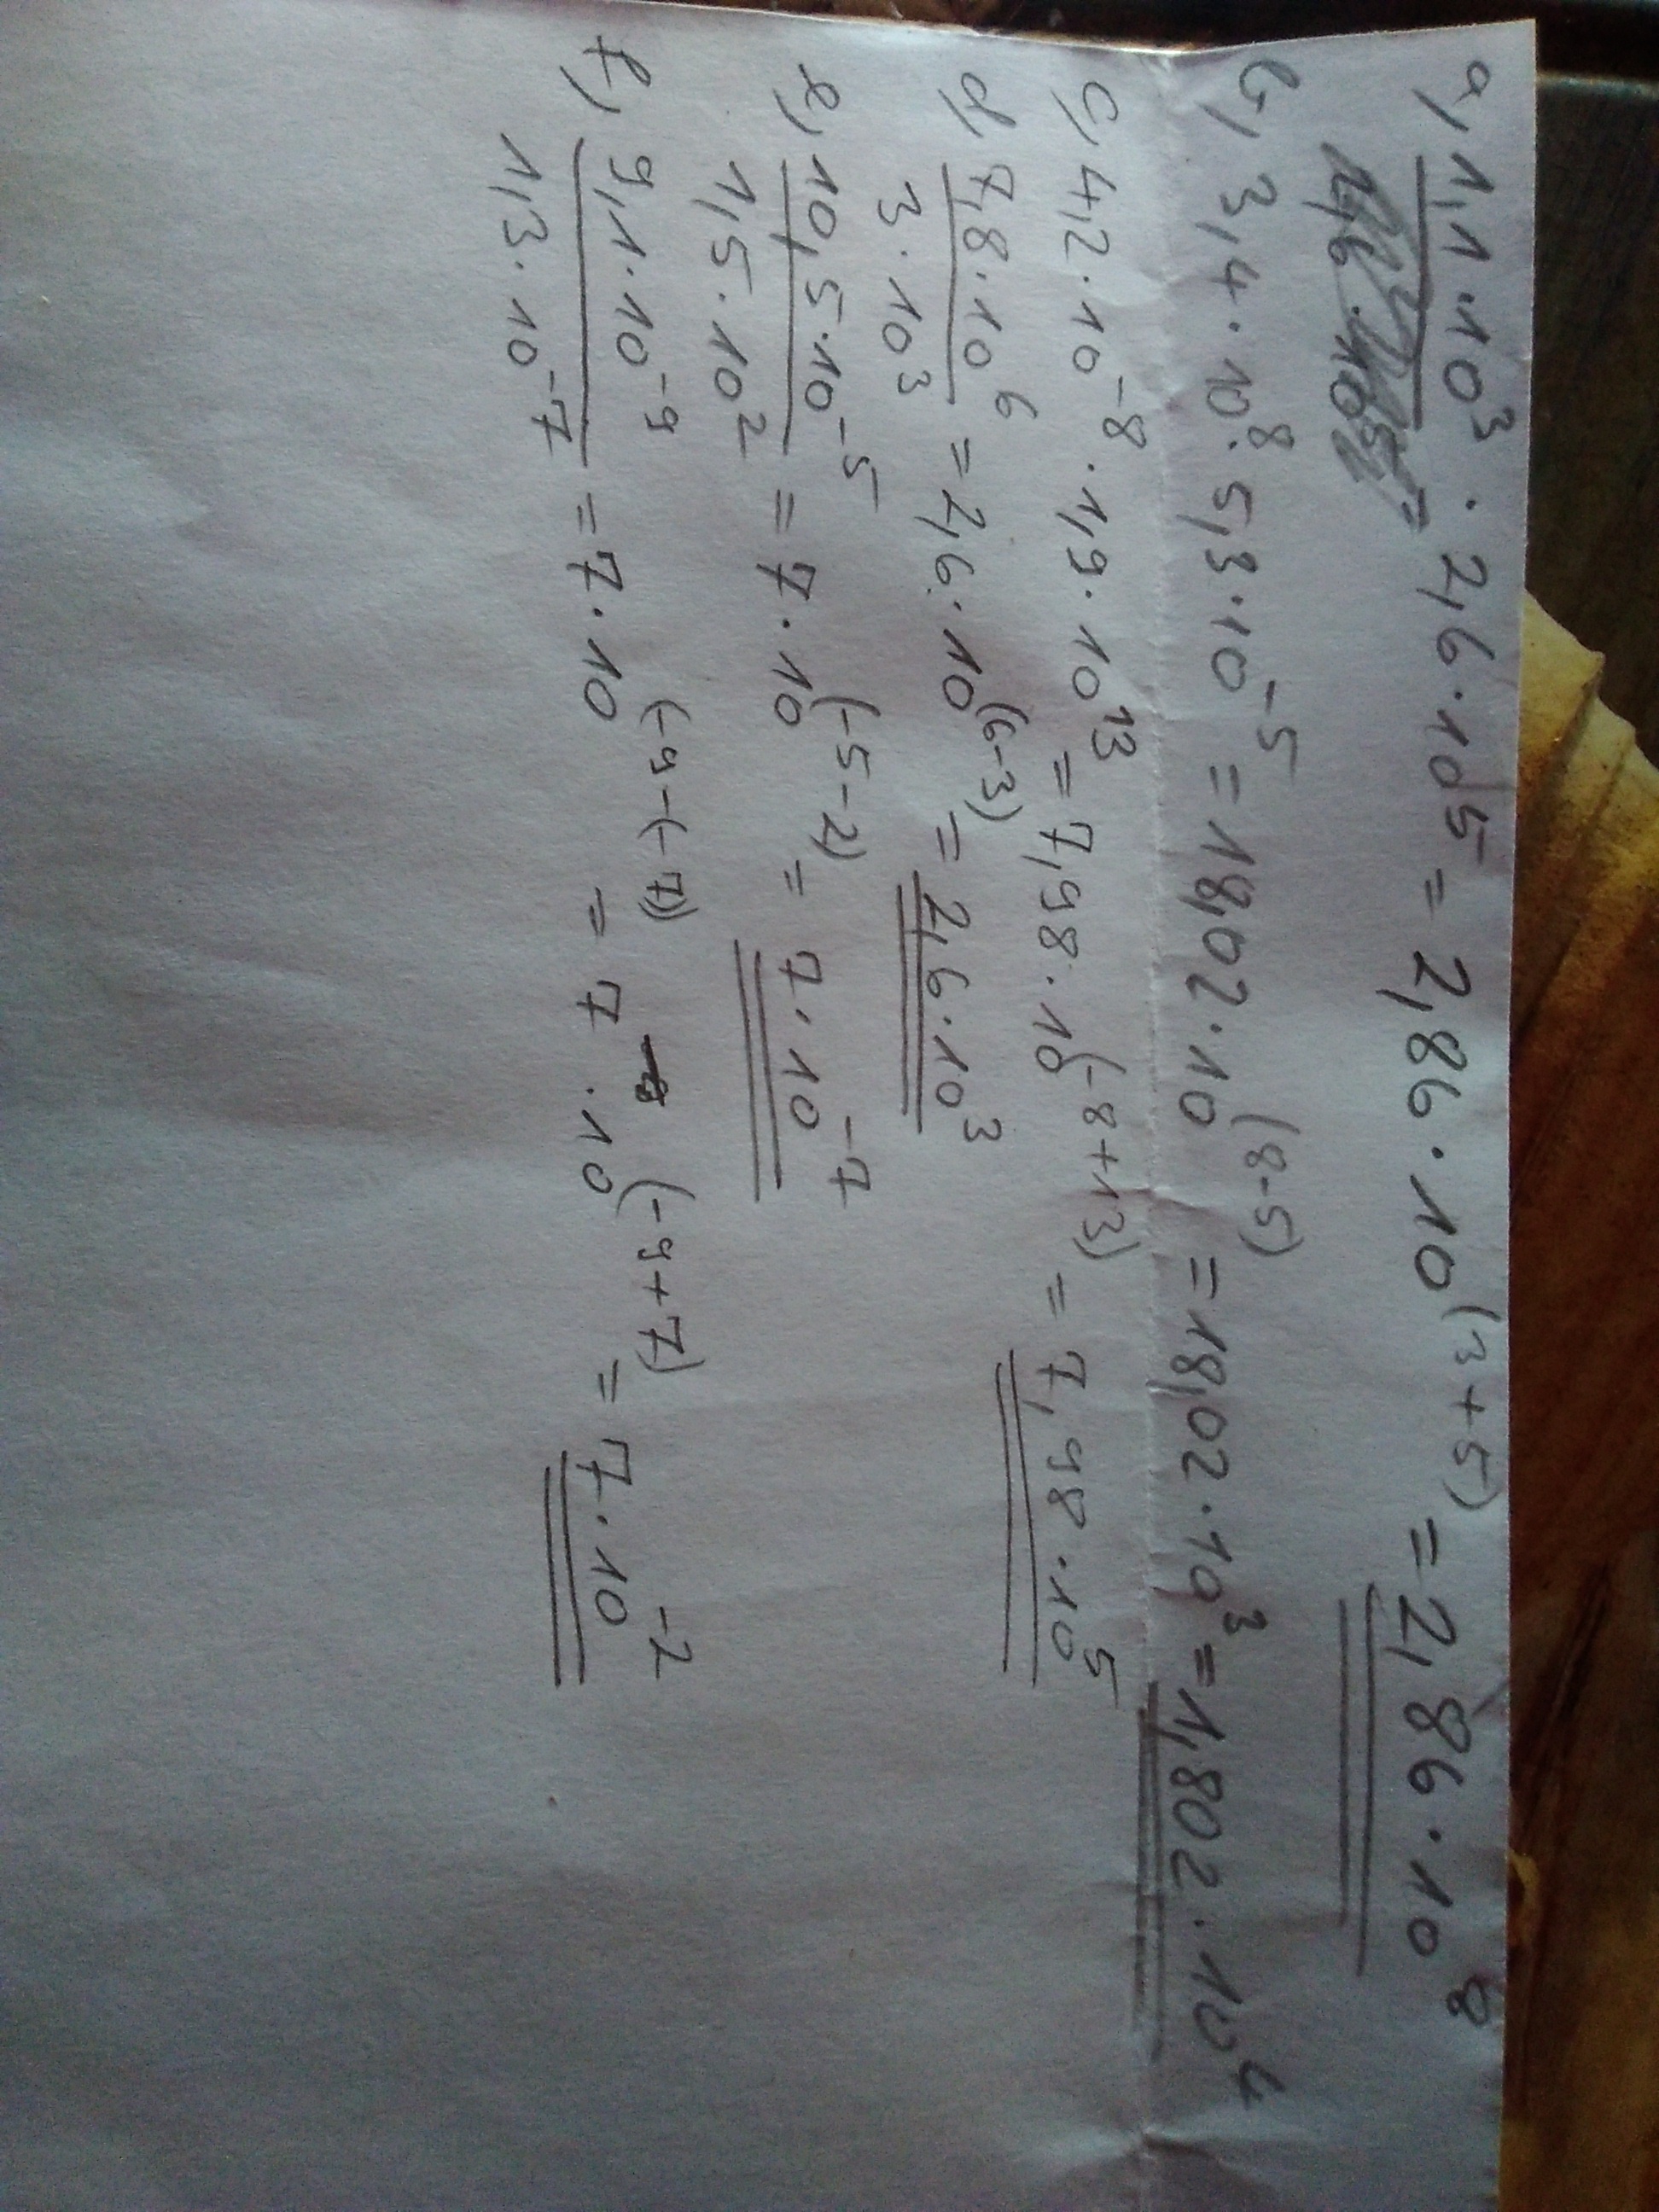 a, 1,1·10³ · 2,6·10⁵ = 2,86·10⁽³⁺⁵⁾ = 2,86·10⁸
b, 3,4·10⁸·5,3·10⁻⁵ = 18,02·10⁽⁸⁻⁵⁾ = 18,02·10³ = 1,802·10⁴
c, 4,2·10⁻⁸·1,9·10¹³ = 7,98·10⁽⁻⁸⁺¹³⁾ = 7,98·10⁵
d, 7,8·10⁶ = 2,6·10⁽⁶⁻³⁾ = 2,6·10³
3·10³
e, 10,5·10⁻⁵ = 7·10⁽⁻⁵⁻²⁾ = 7·10⁻⁷
1,5·10²
f, 9,1·10⁻⁹ = 7·10⁽⁻⁹⁻⁽⁻⁷⁾⁾ = 7·10⁽⁻⁹⁺⁷⁾ = 7·10⁻²
1,3·10⁻⁷